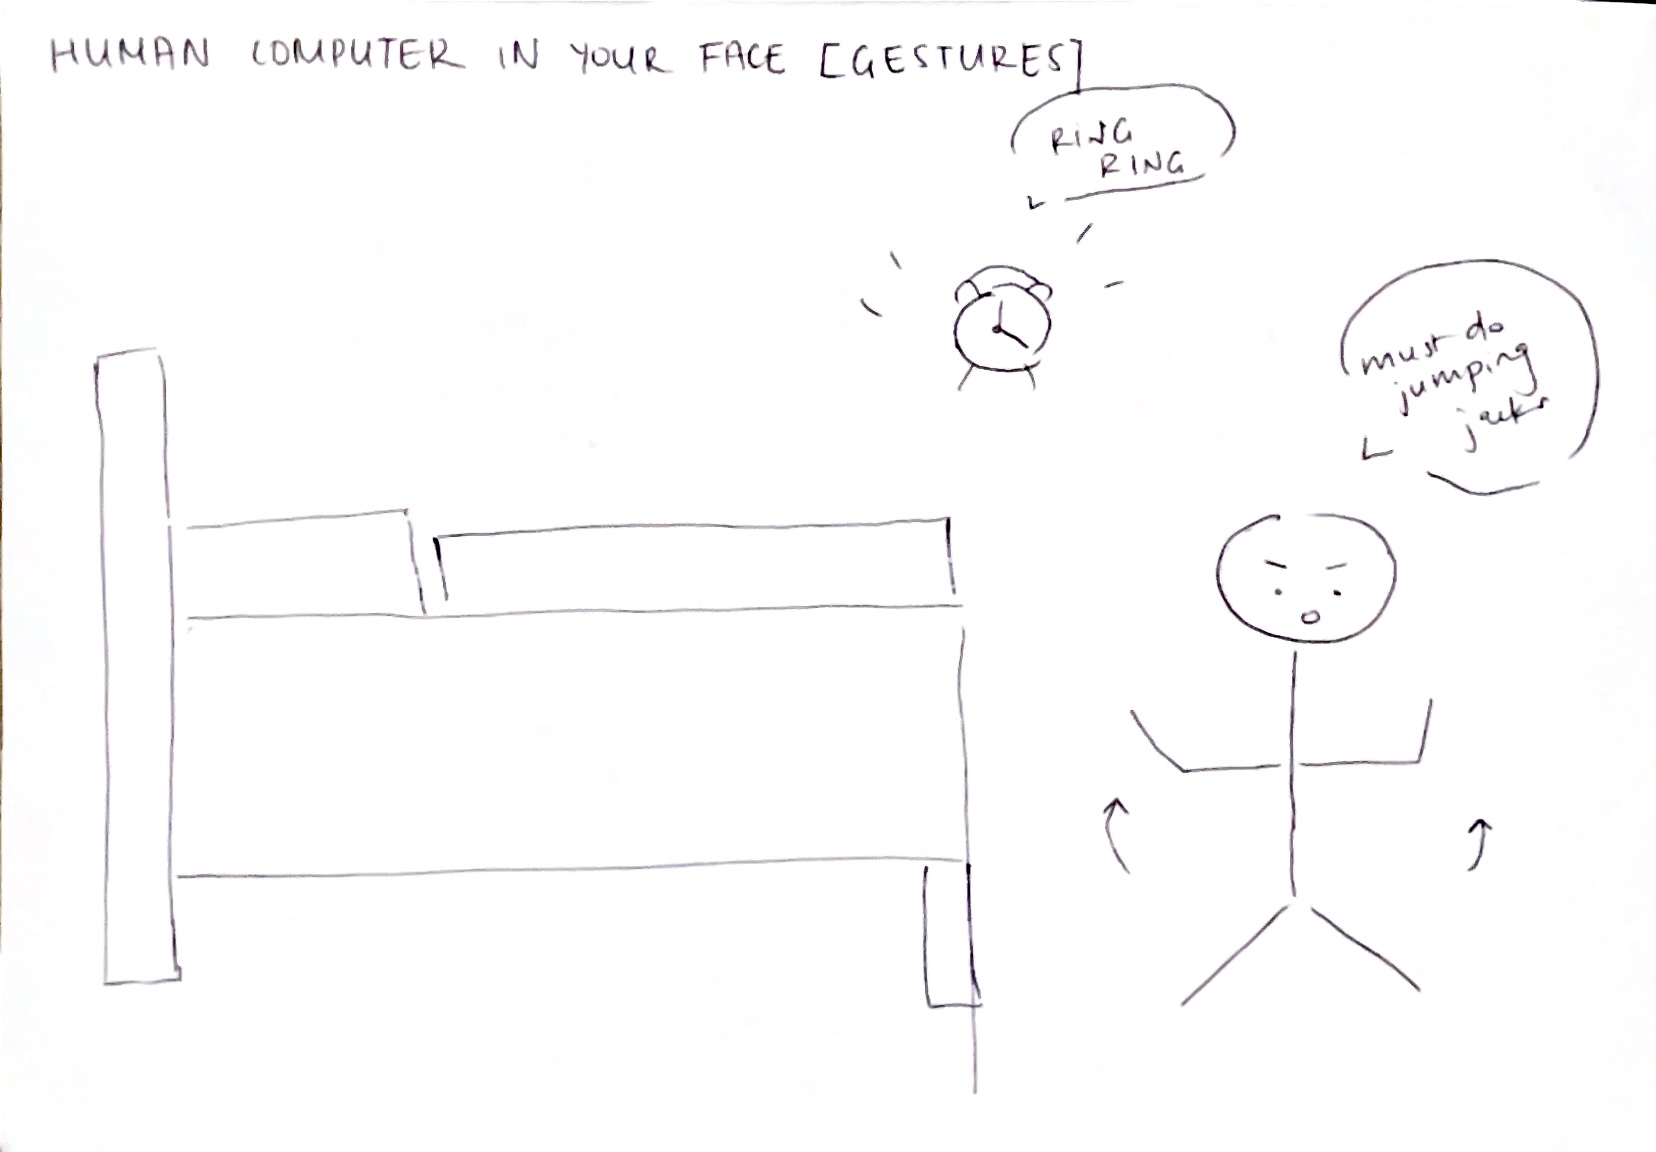 HUMAN COMPUTER IN YOUR FACE [GESTURES]
RING
RING
must do
jumping
jacks